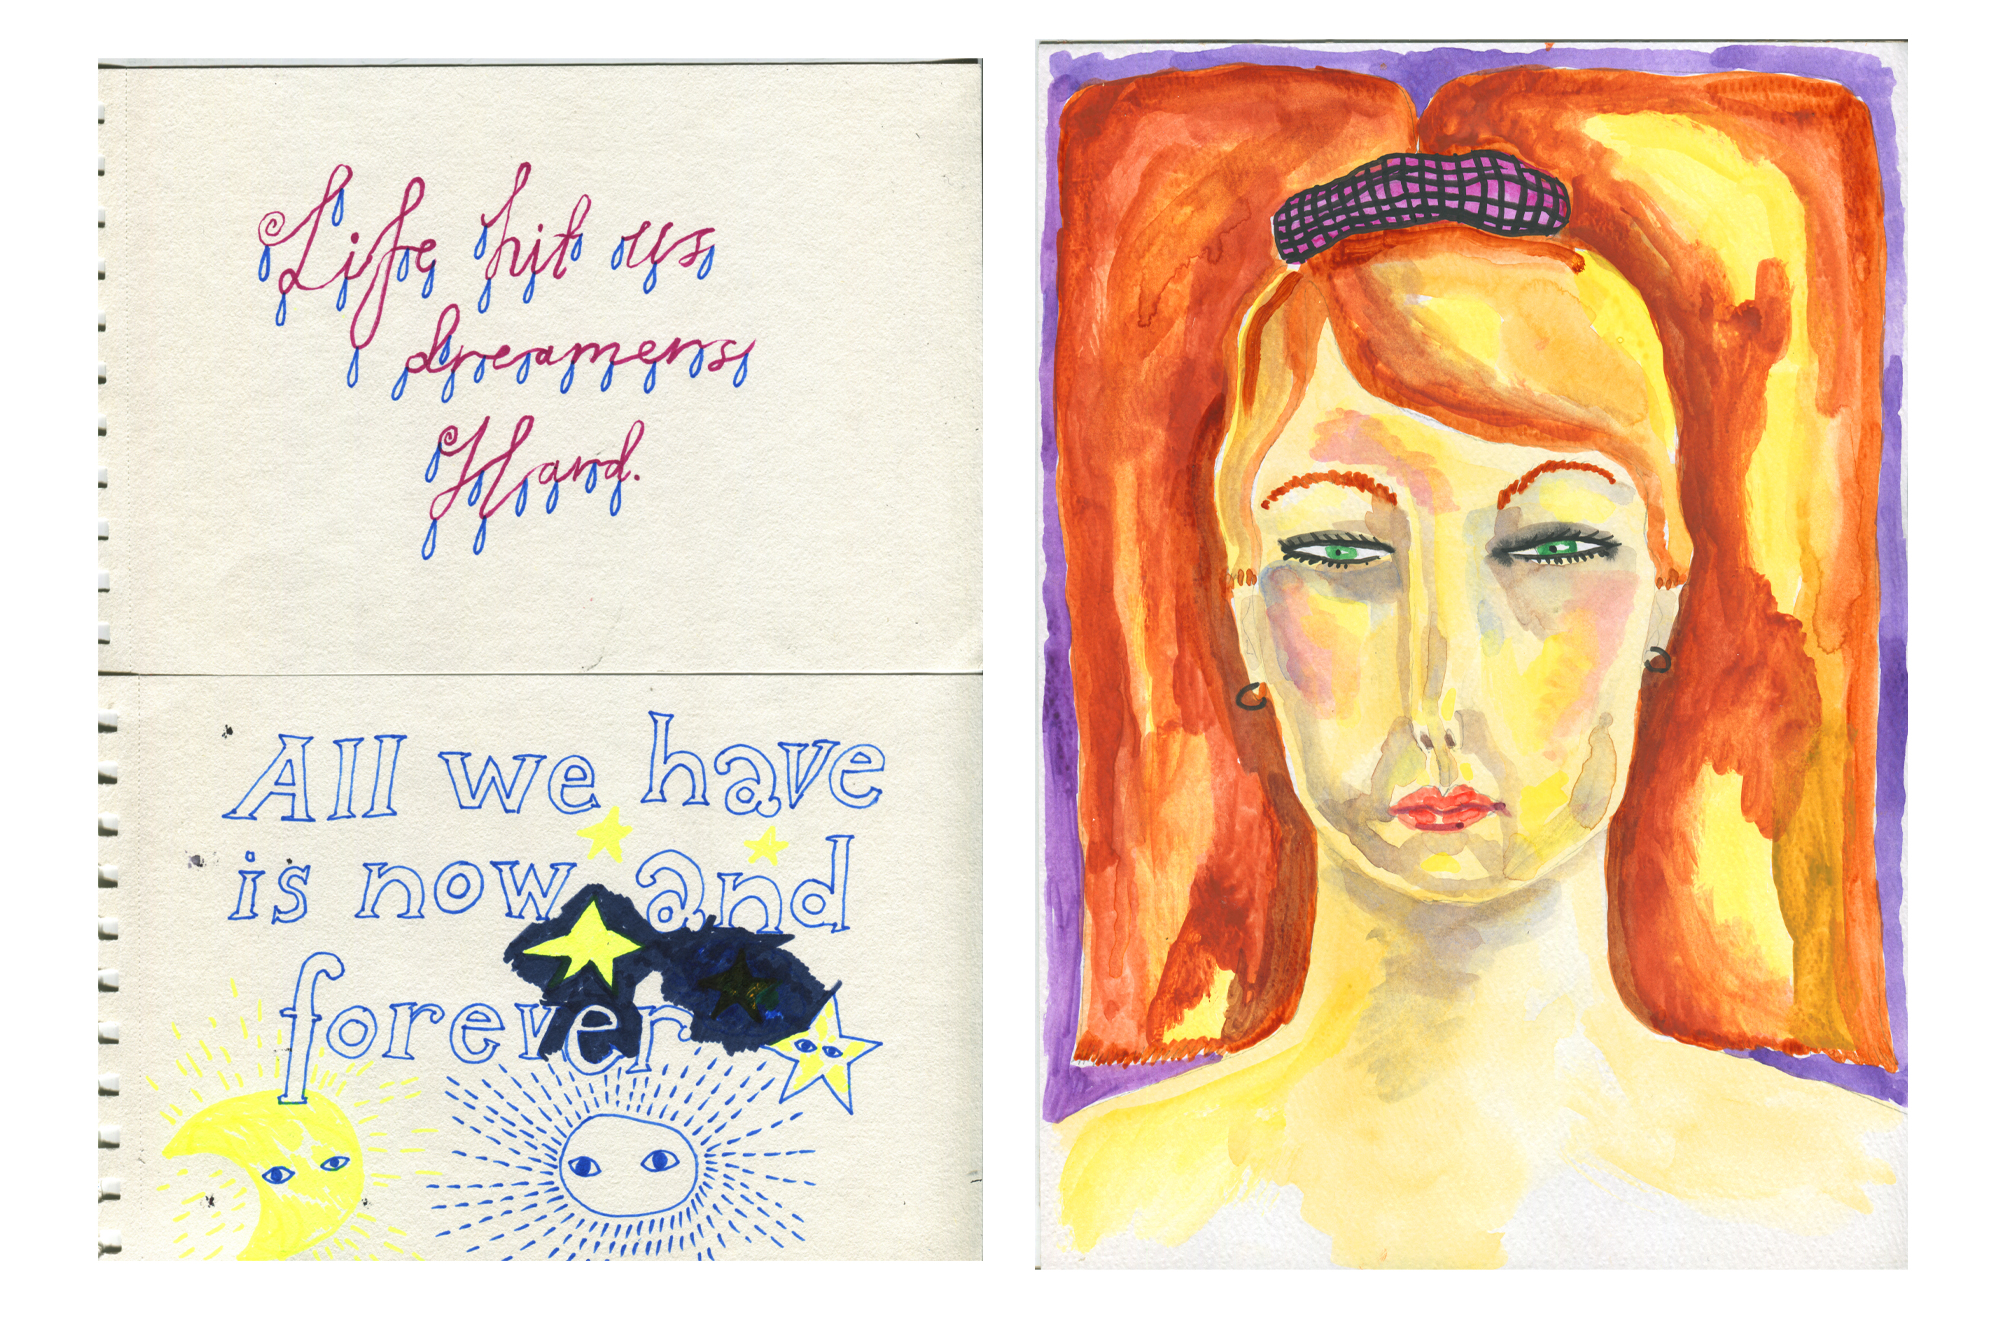 Life hit us
dreamers
Hard.
All we have
is now and
forever